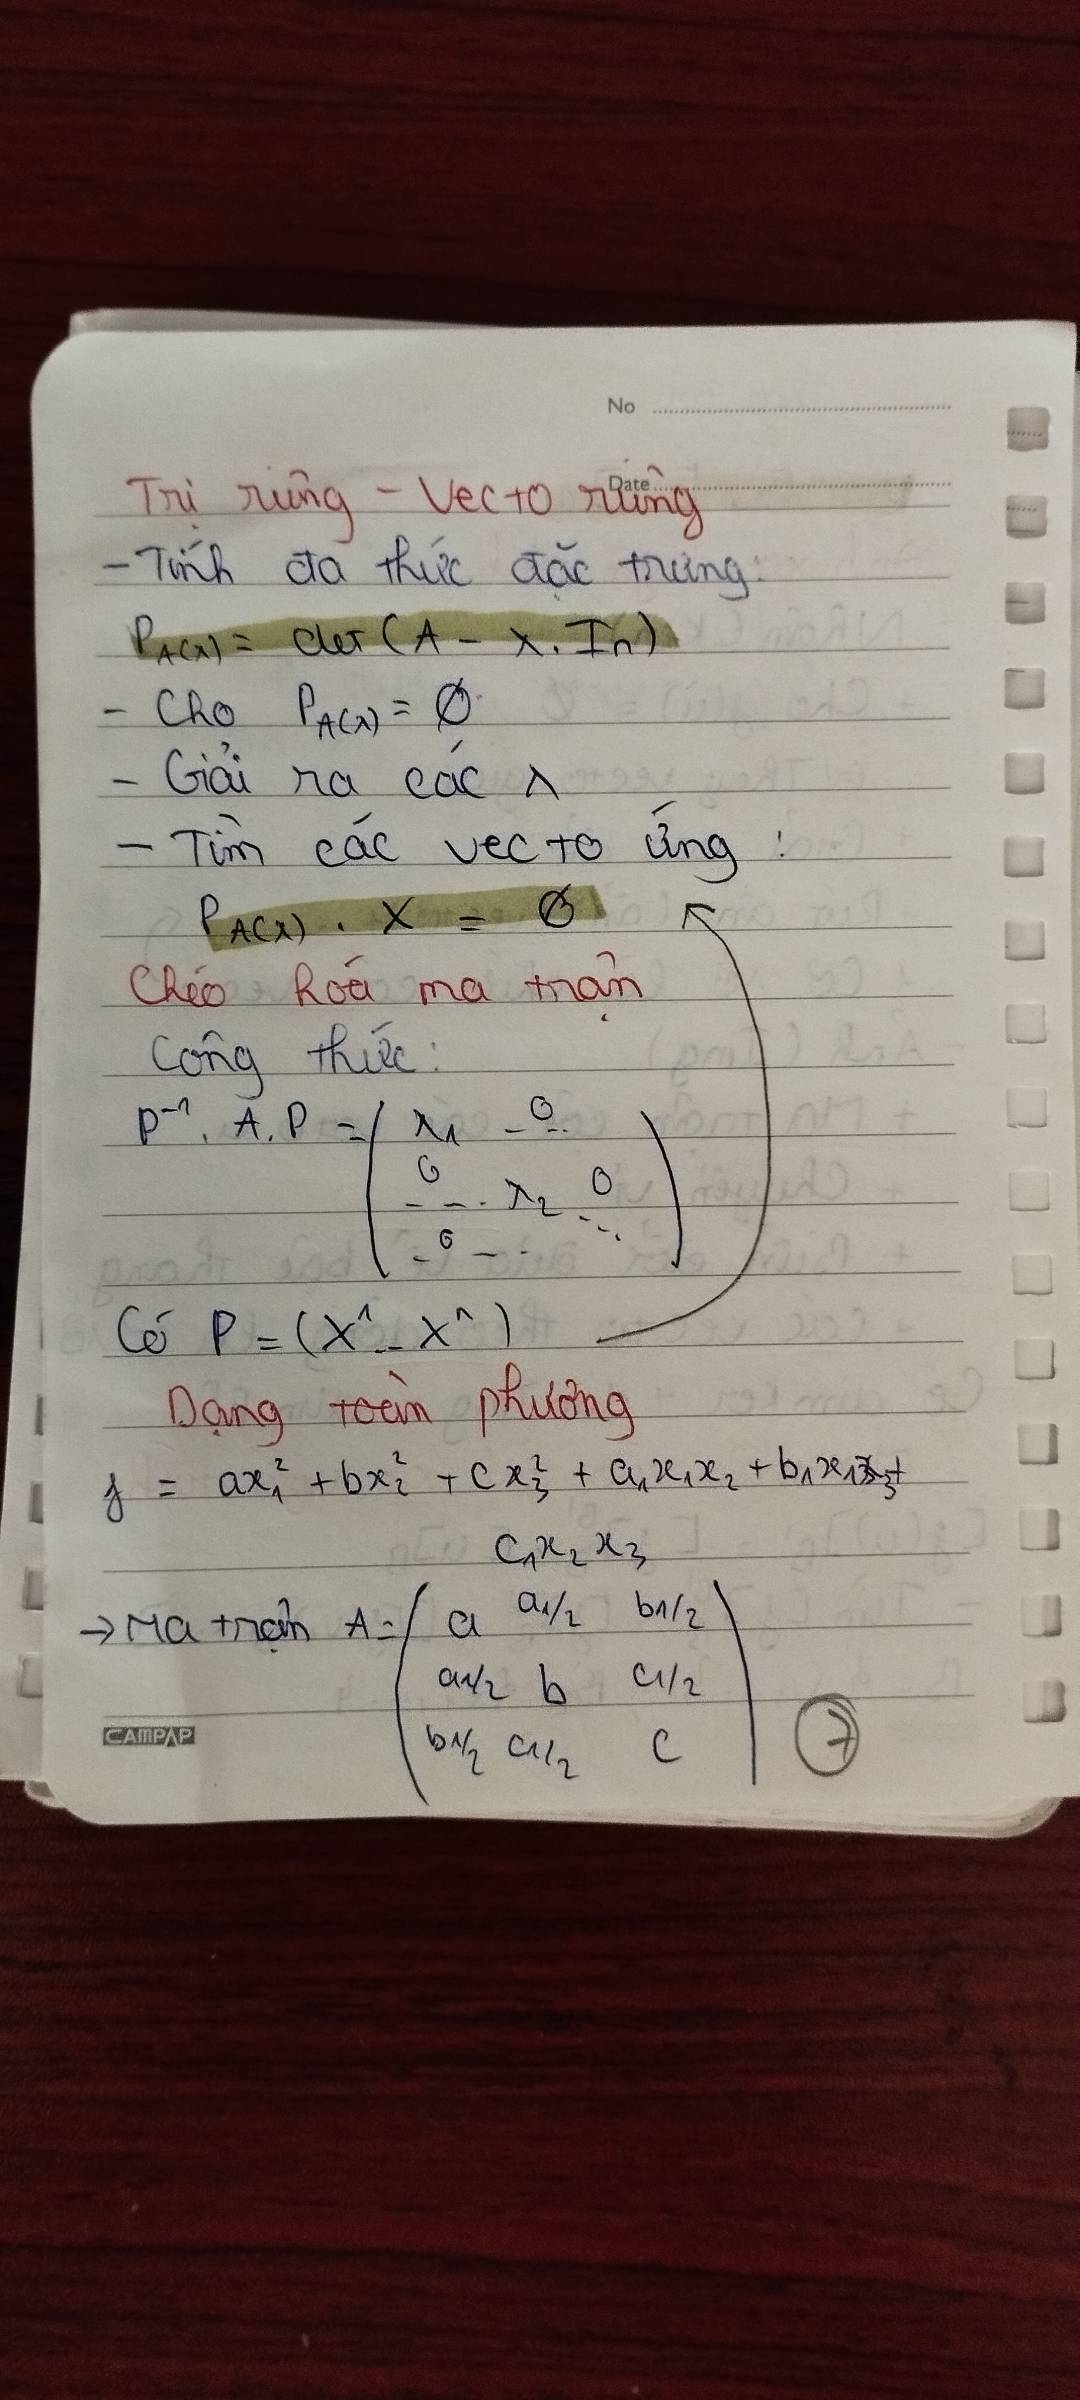 No
Date
Trị riêng - Vectơ riêng
- Tính đa thức đặc trưng:
PA(λ) = det (A - λ. In)
- Cho PA(λ) = Ø
- Giải ra các λ
- Tìm các vectơ ứng :
PA(λ) . X = Ø
Chéo hoá ma trận
Công thức:
P⁻¹. A. P = ( λ1 - 0 -..
0 --. λ2 0 ...
- 0 - . )
Có P = (X¹ -- Xⁿ)
Dạng toàn phương
f = ax₁² + bx₂² + cx₃² + a₁x₁x₂ + b₁x₁x₃ +
c₁x₂x₃
→ Ma trận A = ( a a1/2 b1/2
a1/2 b c1/2
b1/2 c1/2 c )
7
CAMPAP